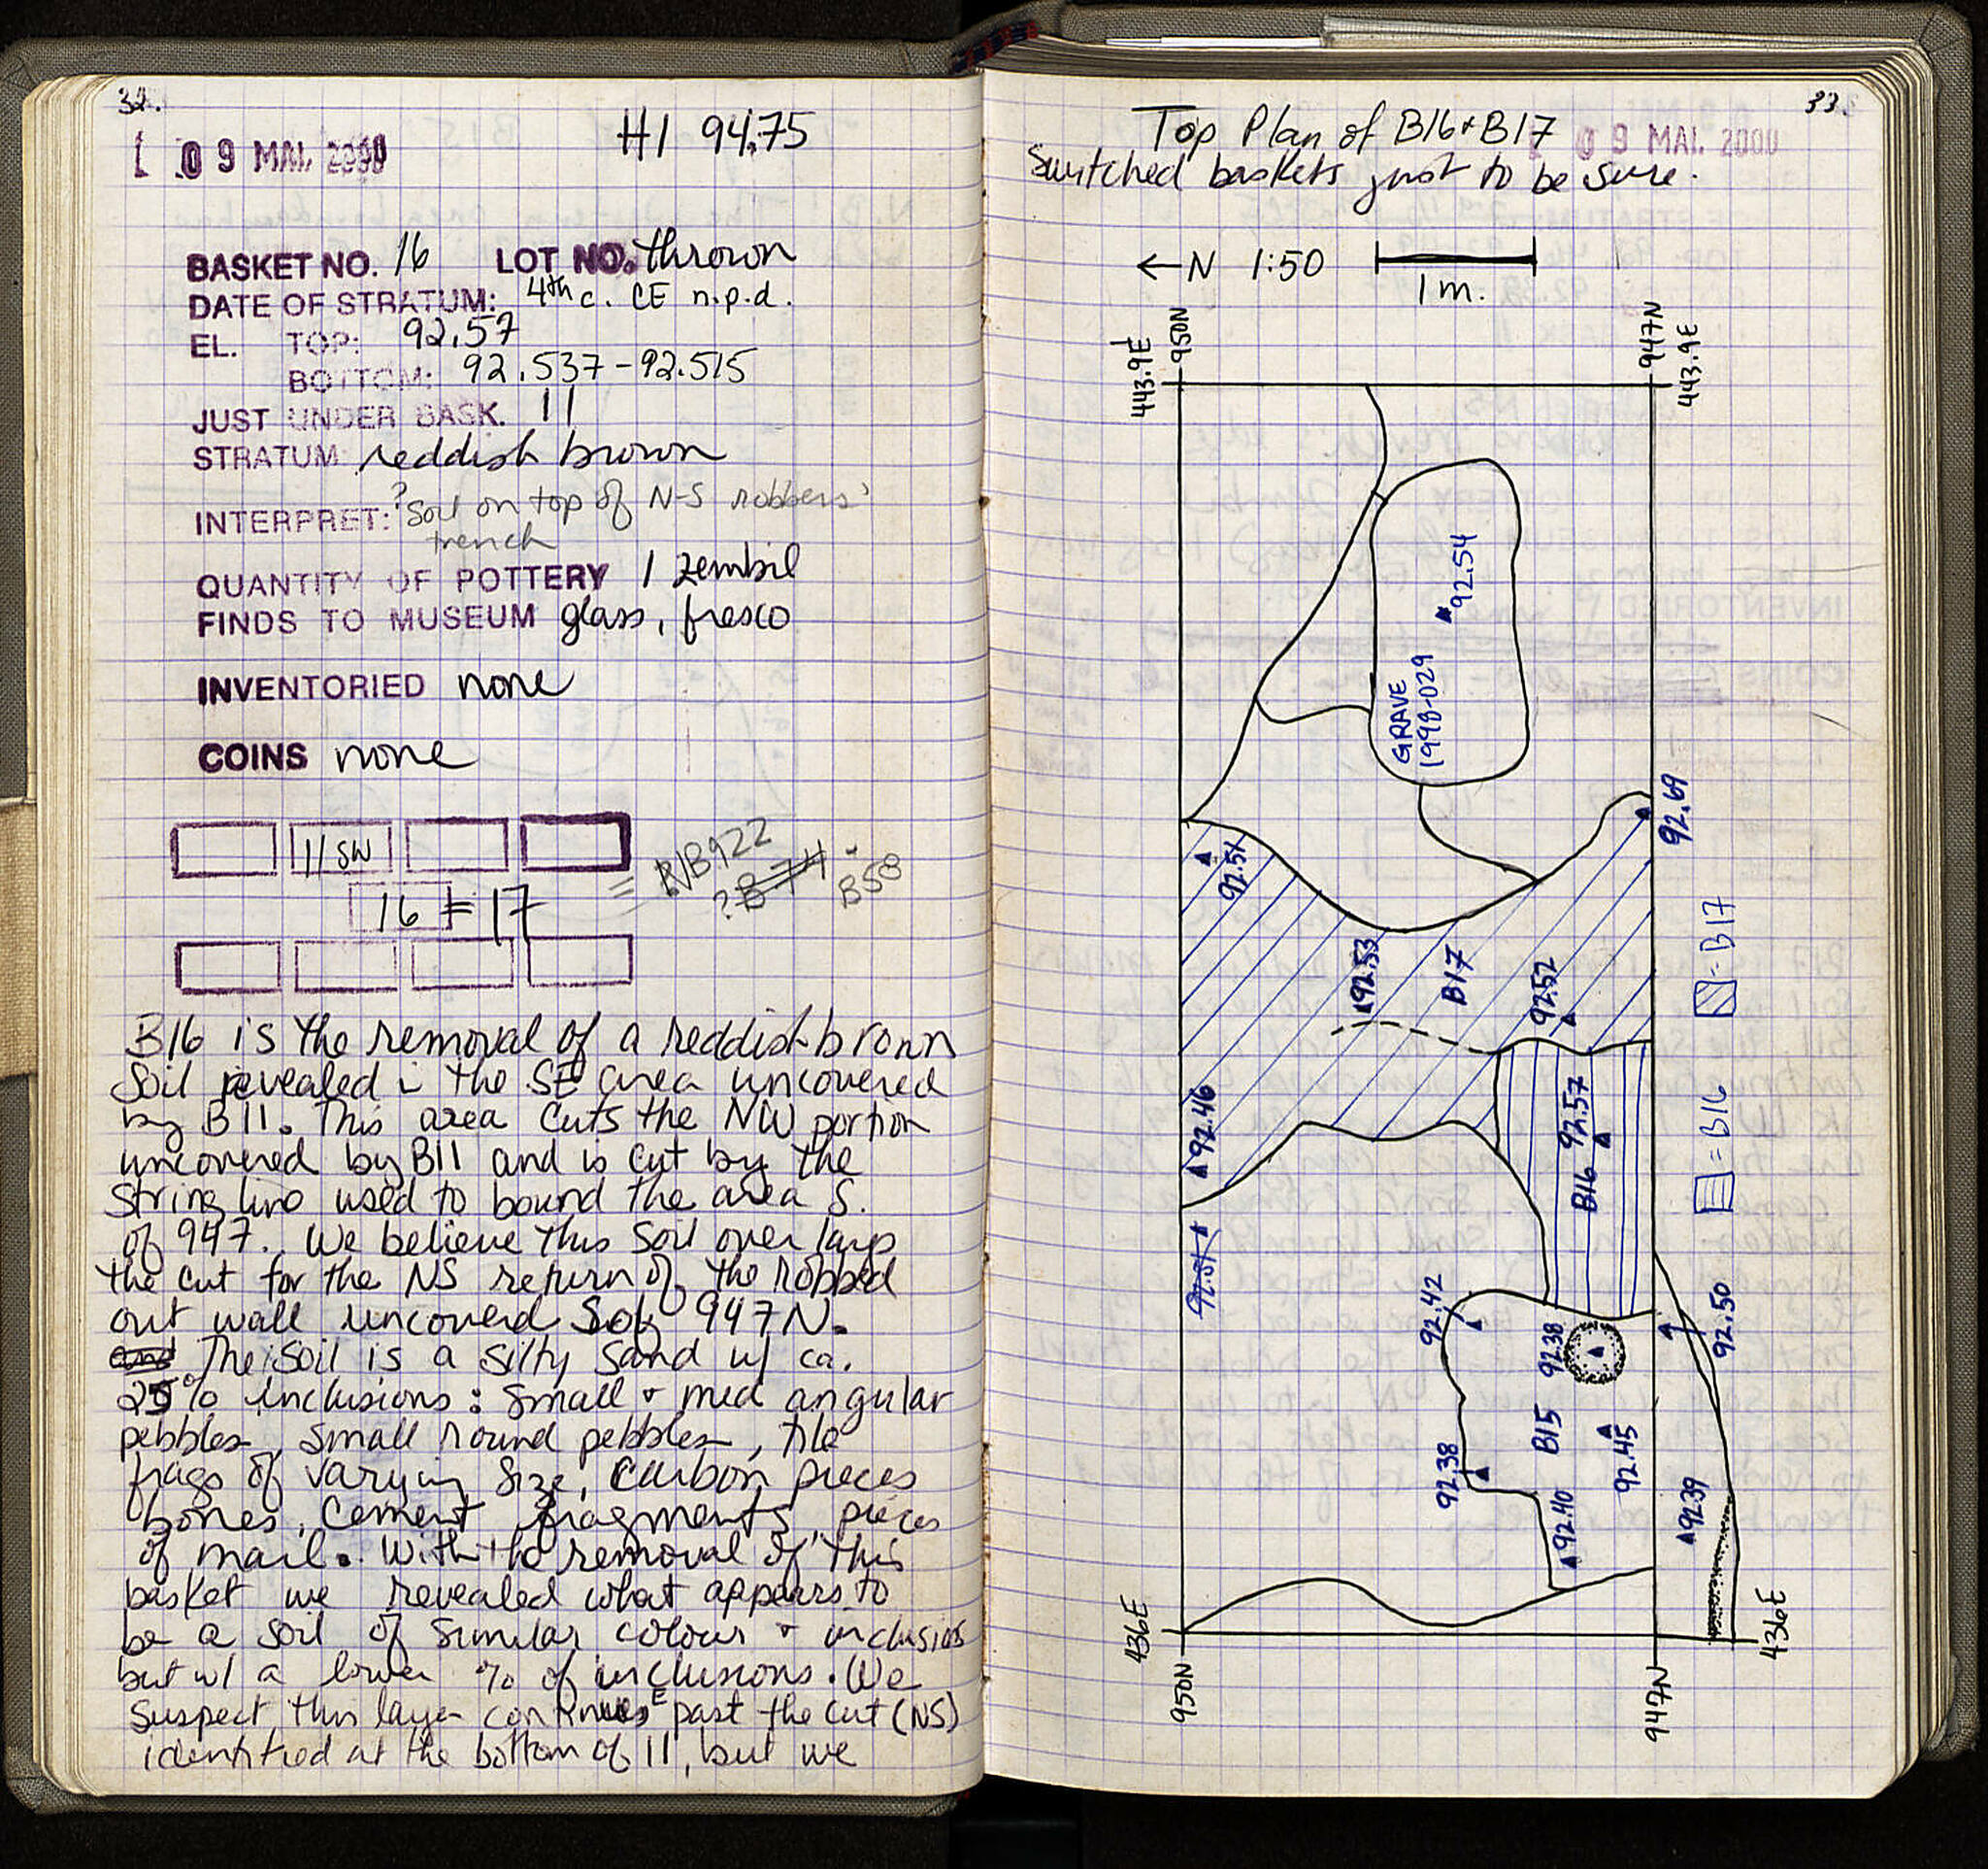 32.
09 MAI. 2000
HI 94.75
BASKET NO. 16 LOT NO. thrown
DATE OF STRATUM: 4th c. CE n.p.d.
EL. TOP: 92.57
BOTTOM: 92.537-92.515
JUST UNDER BASK. 11
STRATUM reddish brown
INTERPRET: ? Soil on top of N-S robbers'
trench
QUANTITY OF POTTERY 1 zembil
FINDS TO MUSEUM glass, fresco
INVENTORIED none
COINS none
11 SW
16 = 17
= B922
? B 74 - B58
B16 is the removal of a reddish brown
Soil revealed in the SE area uncovered
by B11. This area cuts the NW portion
uncovered by B11 and is cut by the
string line used to bound the area S.
of 947. We believe this soil overlaps
the cut for the NS return of the robbed
out wall uncoverd S of 947N.
and The soil is a silty sand w/ ca.
25% inclusions: small + med angular
pebbles, small round pebbles, tile
frags of varying size, carbon pieces
bones, cement fragments, pieces
of mail. With the removal of this
basket we revealed what appears to
be a soil of similar colour + inclusions
but w/ a lower % of inclusions. We
suspect this layer continues E past the cut (NS)
identified at the bottom of 11, but we
33.
Top Plan of B16 + B17
09 MAI. 2000
Switched baskets just to be sure.
←N 1:50
1 m.
443.9E
950N
947N
443.9E
92.54
GRAVE
1998-029
92.69
92.51
92.53
B17
92.52
= B17
92.46
B16 92.57
= B16
92.51
92.42
92.38
92.50
92.38
B15
92.45
92.40
92.39
436E
950N
947N
436E